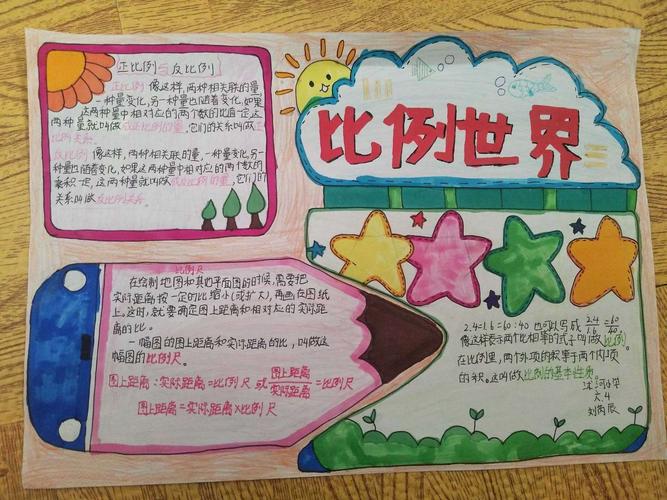 比例世界
正比例与反比例
正比例 像这样，两种相关联的量，
一种量变化，另一种量也随着变化，如果
这两种量中相对应的两个数的比值一定，这
两种量就叫做成正比例的量，它们的关系叫做正
比例关系。
反比例 像这样，两种相关联的量，一种量变化，另一
种量也随着变化，如果这两种量中相对应的两个数的
乘积一定，这两种量就叫做成反比例的量，它们的
关系叫做反比例关系。
比例尺
在绘制地图和其他平面图的时候，需要把
实际距离按一定的比缩小(或扩大)，再画在图纸
上。这时，就要确定图上距离和相对应的实际距
离的比。
一幅图的图上距离和实际距离的比，叫做这
幅图的比例尺。
图上距离：实际距离=比例尺 或 图上距离/实际距离=比例尺
图上距离=实际距离×比例尺
2.4:1.6=60:40 也可以写成 2.4/1.6=60/40
像这样表示两个比相等的式子叫做比例
在比例里，两个外项的积等于两个内项
的积。这叫做比例的基本性质。
六.4